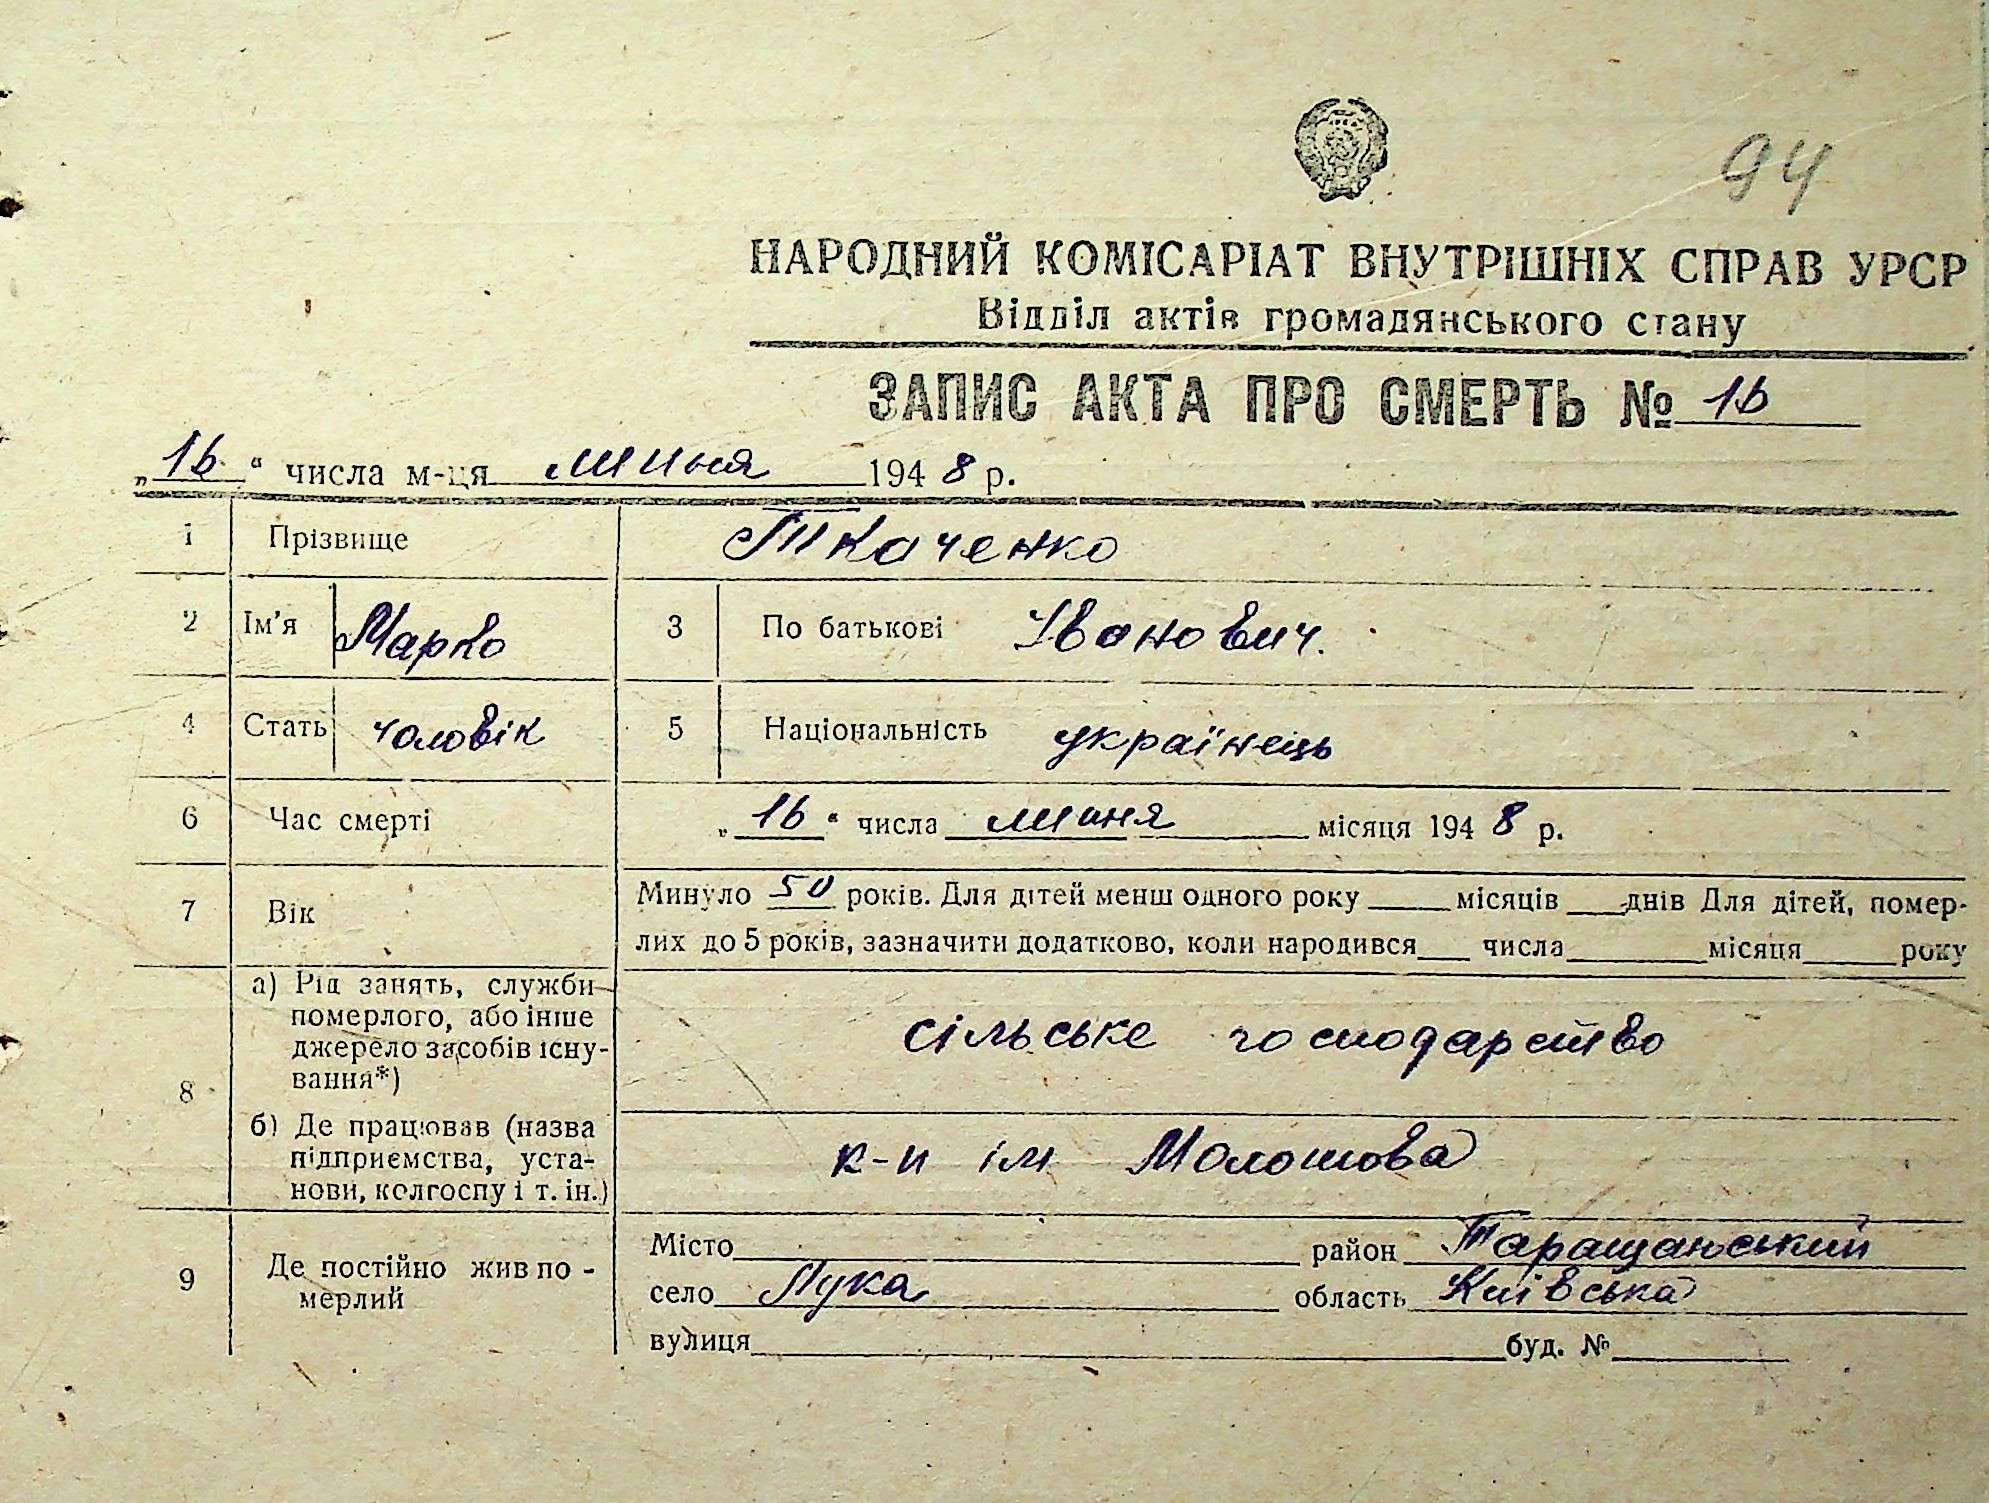 94
НАРОДНИЙ КОМІСАРІАТ ВНУТРІШНІХ СПРАВ УРСР
Відділ актів громадянського стану
ЗАПИС АКТА ПРО СМЕРТЬ № 16
„16“ числа м-ця липня 1948 р.
1 Прізвище Ткаченко
2 Ім'я Марко 3 По батькові Іванович.
4 Стать чоловік 5 Національність українець
6 Час смерті „16“ числа липня місяця 1948 р.
7 Вік Минуло 50 років. Для дітей менш одного року місяців днів Для дітей, помер-
лих до 5 років, зазначити додатково, коли народився числа місяця року
8 а) Рід занять, служби
померлого, або інше
джерело засобів існу-
вання*)
сільське господарство
б) Де працював (назва
підприємства, уста-
нови, колгоспу і т. ін.)
к-п ім Молотова
9 Де постійно жив по-
мерлий
Місто район Таращанський
село Лука область Київська
вулиця буд. №